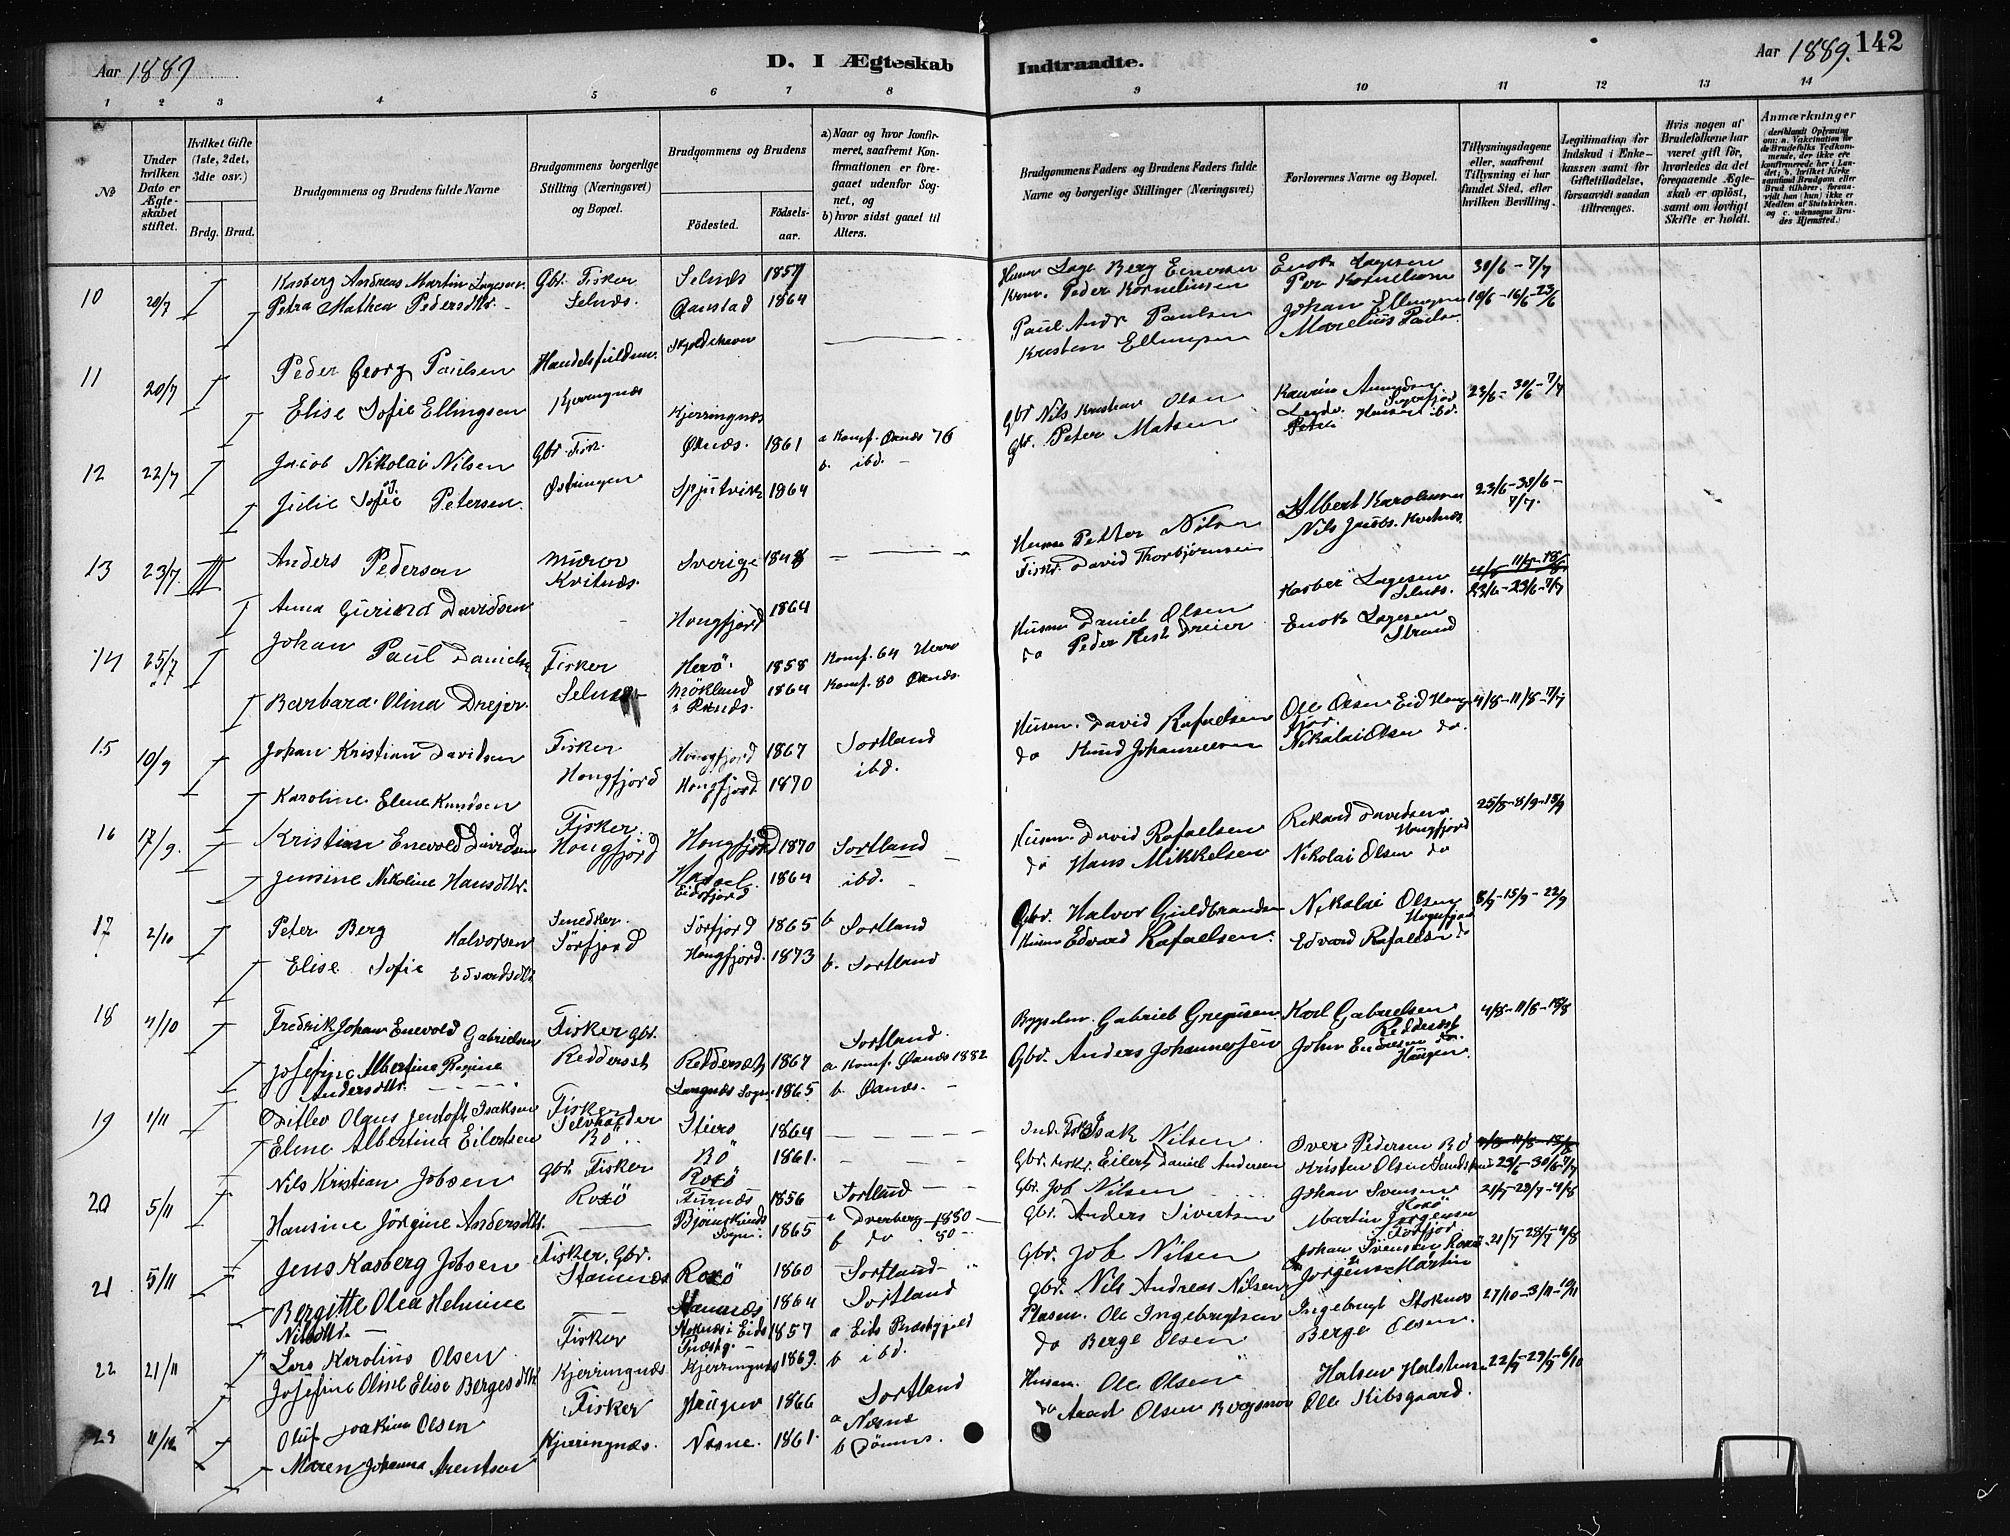 Aar 1889
D. I Ægteskab
1 2 3 4 5 6 7 8
No
Under hvilken Dato er Ægteskabet stiftet.
Hvilket Gifte (1ste, 2det, 3die osv.)
Brdg. Brud.
Brudgommens og Brudens fulde Navne
Brudgommens borgerlige Stilling (Næringsvei) og Bopæl.
Brudgommens og Brudens
Fødested.
Fødselsaar.
a) Naar og hvor konfirmeret, saafremt Konfirmationen er foregaaet udenfor Sognet, og
b) hvor sidst gaaet til Alters.
10 20/7 Kasberg Andreas Martin Lagesen Gbr. Fisker Selnes 1857
Petra Mathea Pedersdtr. Selnæs. 1864
Skjoldehavn
11 20/7 Peder Georg Paulsen
Elise Sofie Ellingsen Kjerringnæs Kjerringnæs
12 22/7 Jacob Nikolai Nilsen Gbr. Fisk. Øxnæs. 1861 a Konf. Øxnæs 76
b. ibd.
Julie Sofie Petersen Spjutvik 1864
13 23/7 Anders Pederson Murer Sverige 1848
Kvitnæs
Anna Davidsen Hongfjord 1864
14 25/7 Johan Paul Daniels. Fisker Herø 1858 Konf. 64 Herø
Barbara Olina Drejer. Møkland 1864 Konf. 80 Øxnæs.
15 10/9 Johan Kristian Davidsen Fisker Hongfjord 1867 Sortland
Karoline Elene Knudsen Hongfjord Hongfjord 1870 ibd.
16 17/9. Kristian Enevold Davidsen Fisker Hongfjord Hongfjord 1870 Sortland
Jensine Nikoline Hansdtr. Hadsel Eidsfjord 1864 ibd.
17 2/10 Peter Berg Halvorsen Snedker. Sørfjord 1865 b Sortland
Elise Sofie Edvardsdtr Sørfjord Hongfjord. 1873 b. Sortland
18 4/10 Fredrik Johan Enevold Gabrielsen Fisker Gbr. Sortland
Josefine Albertine Regine Reddersæt 1867 a Konf. Øxnæs 1882
Andersdtr. Langnæs Sogn. 1865 b Øxnæs.
19 1/11 Ditlev Olaus Jentoft Isaksen Fisker Selvholder 1864
Elene Albertina Eilertsen Bø Bø 1861.
20 5/11 Nils Kristian Jobsen Gbr. Fisker Roxø
Roxø 1856 Sortland
Hansine Jørgine Andersdtr. Bjørnskinds Sogn. 1865 a Dverberg 1880
b do 80
21 5/11 Jens Kasberg Jobsen Fisker, Gbr. Roxø 1860 Sortland
Bergitte Olea Helmine 1864 Sortland
Nilsdtr.
22 21/11 Lars Karolius Olsen Fisker Stoknæs i Eids Præstg. 1857 a Eids Præstegjeld
Josefine Oline Elise Bergesdtr Kjerringnæs Kjerringnæs 1869. b ibd.
23 11/12 Oluf Joakim Olsen Fisker 1866 Sortland
Maren Johanna Arentsen Kjerringnæs. Næsne. 1861. a Næsne
b Dønnes.
Indtraadte.
Aar 1889. 142
9 10 11 12 13 14
Brudgommens Faders og Brudens Faders fulde Navne og borgerlige Stillinger (Næringsvei)
Forlovernes Navne og Bopæl.
Tillysningsdagene eller, saafremt Tillysning ei har fundet Sted, efter hvilken Bevilling.
Legitimation for Indskud i Enkekassen samt for Giftetilladelse, forsaavidt saadan tiltrænges.
Hvis nogen af Brudefolkene har været gift før, hvorledes da det foregaaende Ægteskab er opløst, samt om lovligt Skifte er holdt.
Anmærkninger
(deriblandt Oplysning om: a. Vaccination for de Brudefolks Vedkommende, der ikke ere konfirmerede her i Landet; b. hvilket Kirkesamfund Brudgom eller Brud tilhører, forsaavidt han (hun) ikke er Medlem af Statskirken, og c. udensogns Brudes Hjemsted.)
Husm. Lage Berg Enok Lagesen 30/6 - 7/7
Peder Kornelius​sen Per Korneliussen
Paul Andr Paulsen Johan Ellingsen 10/6-16/6-23/6
Kristian Ellingsen Marelius Paulse
Gbr Nils Kristian Olsen 23/6 - 30/6 - 7/7
Gbr. Peter Matsen Hansen ibd.
Husm. Petter Nilsen Albert Karolius​sen 23/6 - 30/6 - 7/7.
Fiskr. David Thorbjørnsen Nils Jacobs. Kvitnæs
Husm Daniel Olsen Kasber Lagesen Selnæs. 4/8-11/8-18/8
23/6 - 23/6 - 7/7
do Peder Hest Dreier Enok Lagesen Strand
Husm. David Rafaelsen Ole Olsen Eid 4/8-11/8-7/7
do Knud Johannessen Nikolai Olsen do.
Husm. David Rafaelsen Rikard Davidsen Hongfjord 25/8-8/9-15/9
do Hans Mikkelsen Nikolai Olsen do
Gbr. Halvor Guldbrandsen Nikolai Olsen Hognfjord 8/9-15/9-22/9
Husm Edvard Rafaelsen. Edvard Rafaelsen do
Gabriel Karl Gabrielsen Reddersæt 4/8-11/8-18/8
Gbr. Anders Johannessen John Endresen Haugen.
Isak Nilsen Iver Pedersen Bø 4/8-11/8-18/8
Gbr. fiskr. Eilert Daniel Andersen Kristen Olsen 23/6-30/6-7/7
Gbr. Job Nilsen Johan Svensen Roxø 21/7-28/7-4/8
Gbr. Anders Sivertsen Martin Jørgensen
Gbr. Job Nilsen Johan Svensen Roxø 21/7-28/7-4/8
Gbr. Nils Andreas Nilsen Jørgensen Martin
Plasm. Ole Ingebrigtsen Ingebrigt Stoknæs 27/10-3/11-10/11
do Berge Olsen Berge Olsen.
Husm. Ole Olsen Halsen 22/9-29/9-6/10
do Arent Olsen Ole Kibsgaard.